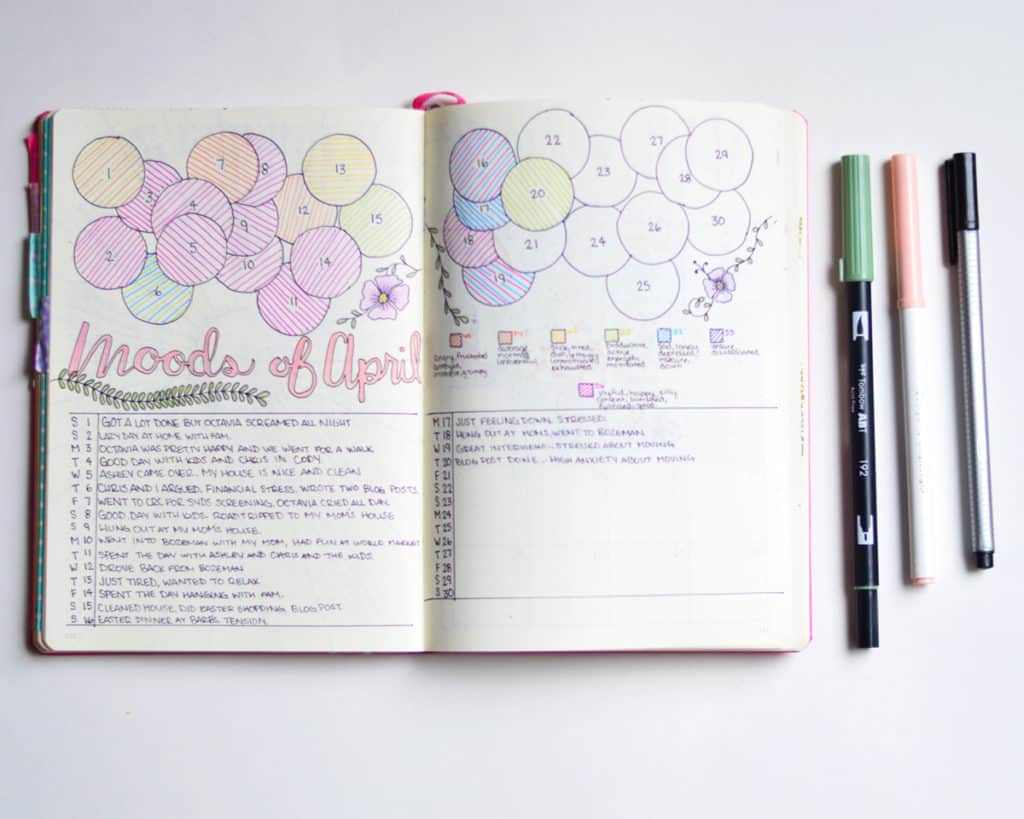 1
3
7
8
13
4
12
15
9
2
5
10
14
6
11
Moods of April
S 1 GOT A LOT DONE BUT OCTAVIA SCREAMED ALL NIGHT
S 2 LAZY DAY AT HOME WITH FAM.
M 3 OCTAVIA WAS PRETTY HAPPY AND WE WENT FOR A WALK
T 4 GOOD DAY WITH KIDS AND CHRIS IN CODY
W 5 ASHLEY CAME OVER. MY HOUSE IS NICE AND CLEAN
T 6 CHRIS AND I ARGUED. FINANCIAL STRESS. WROTE TWO BLOG POSTS.
F 7 WENT TO CRC FOR SVDS SCREENING. OCTAVIA CRIED ALL DAY.
S 8 GOOD DAY WITH KIDS. ROAD TRIPPED TO MY MOM'S HOUSE
S 9 HUNG OUT AT MY MOM'S HOUSE.
M 10 WENT INTO BOZEMAN WITH MY MOM, HAD FUN AT WORLD MARKET
T 11 SPENT THE DAY WITH ASHLEY AND CHRIS AND THE KIDS
W 12 DROVE BACK FROM BOZEMAN
T 13 JUST TIRED, WANTED TO RELAX
F 14 SPENT THE DAY HANGING WITH FAM.
S 15 CLEANED HOUSE, DID EASTER SHOPPING. BLOG POST
S 16 EASTER DINNER AT BARB'S. TENSION.
16
22
27
29
20
23
28
17
18
21
24
26
30
19
25
angry, frustrated
average
normal
uneventful
sick, tired,
dull, lethargic
unmotivated
exhausted
productive,
active
energetic
motivated
sad, lonely
depressed
insecure,
down
joyful, happy, silly
content,
M 17 JUST FEELING DOWN. STRESSED
T 18 HUNG OUT AT MOMS, WENT TO BOZEMAN
W 19 GREAT INTERVIEW... STRESSED ABOUT MOVING
T 20 BLOG POST DONE... HIGH ANXIETY ABOUT MOVING
F 21
S 22
S 23
M 24
T 25
W 26
T 27
F 28
S 29
S 30
Tombow ABT
192